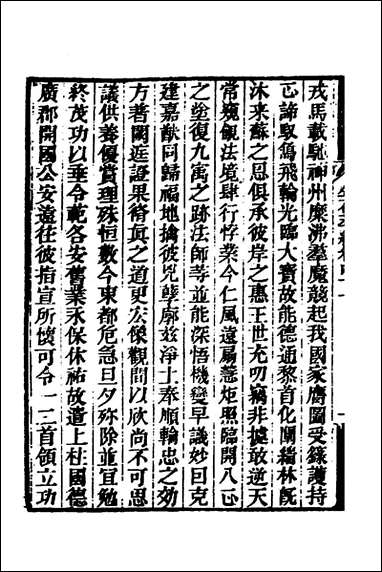 戎馬載馳神州糜沸羣魔競起我國家膺圖受籙護持
正諦馭鴿飛輪光臨大寶故能德通黎首化闡緇林旣
沐來蘇之恩俱承彼岸之惠王世充叨竊非據敢逆天
常窺覦法境肆行悖業今仁風遠扇慧炬照臨開八正
之塗復九寓之跡法師等並能深悟機變早識妙因克
建嘉猷同歸福地擒彼兇孽廓茲淨土奉順輸忠之効
方著闕廷證果脩眞之道更宏像觀聞以欣尚不可思
議供養優賞理殊恒數今東都危急旦夕殄除並宜勉
終茂功以垂令範各安舊業永保休祐故遣上柱國德
廣郡開國公安遠往彼指宣所懷可令一二首領立功